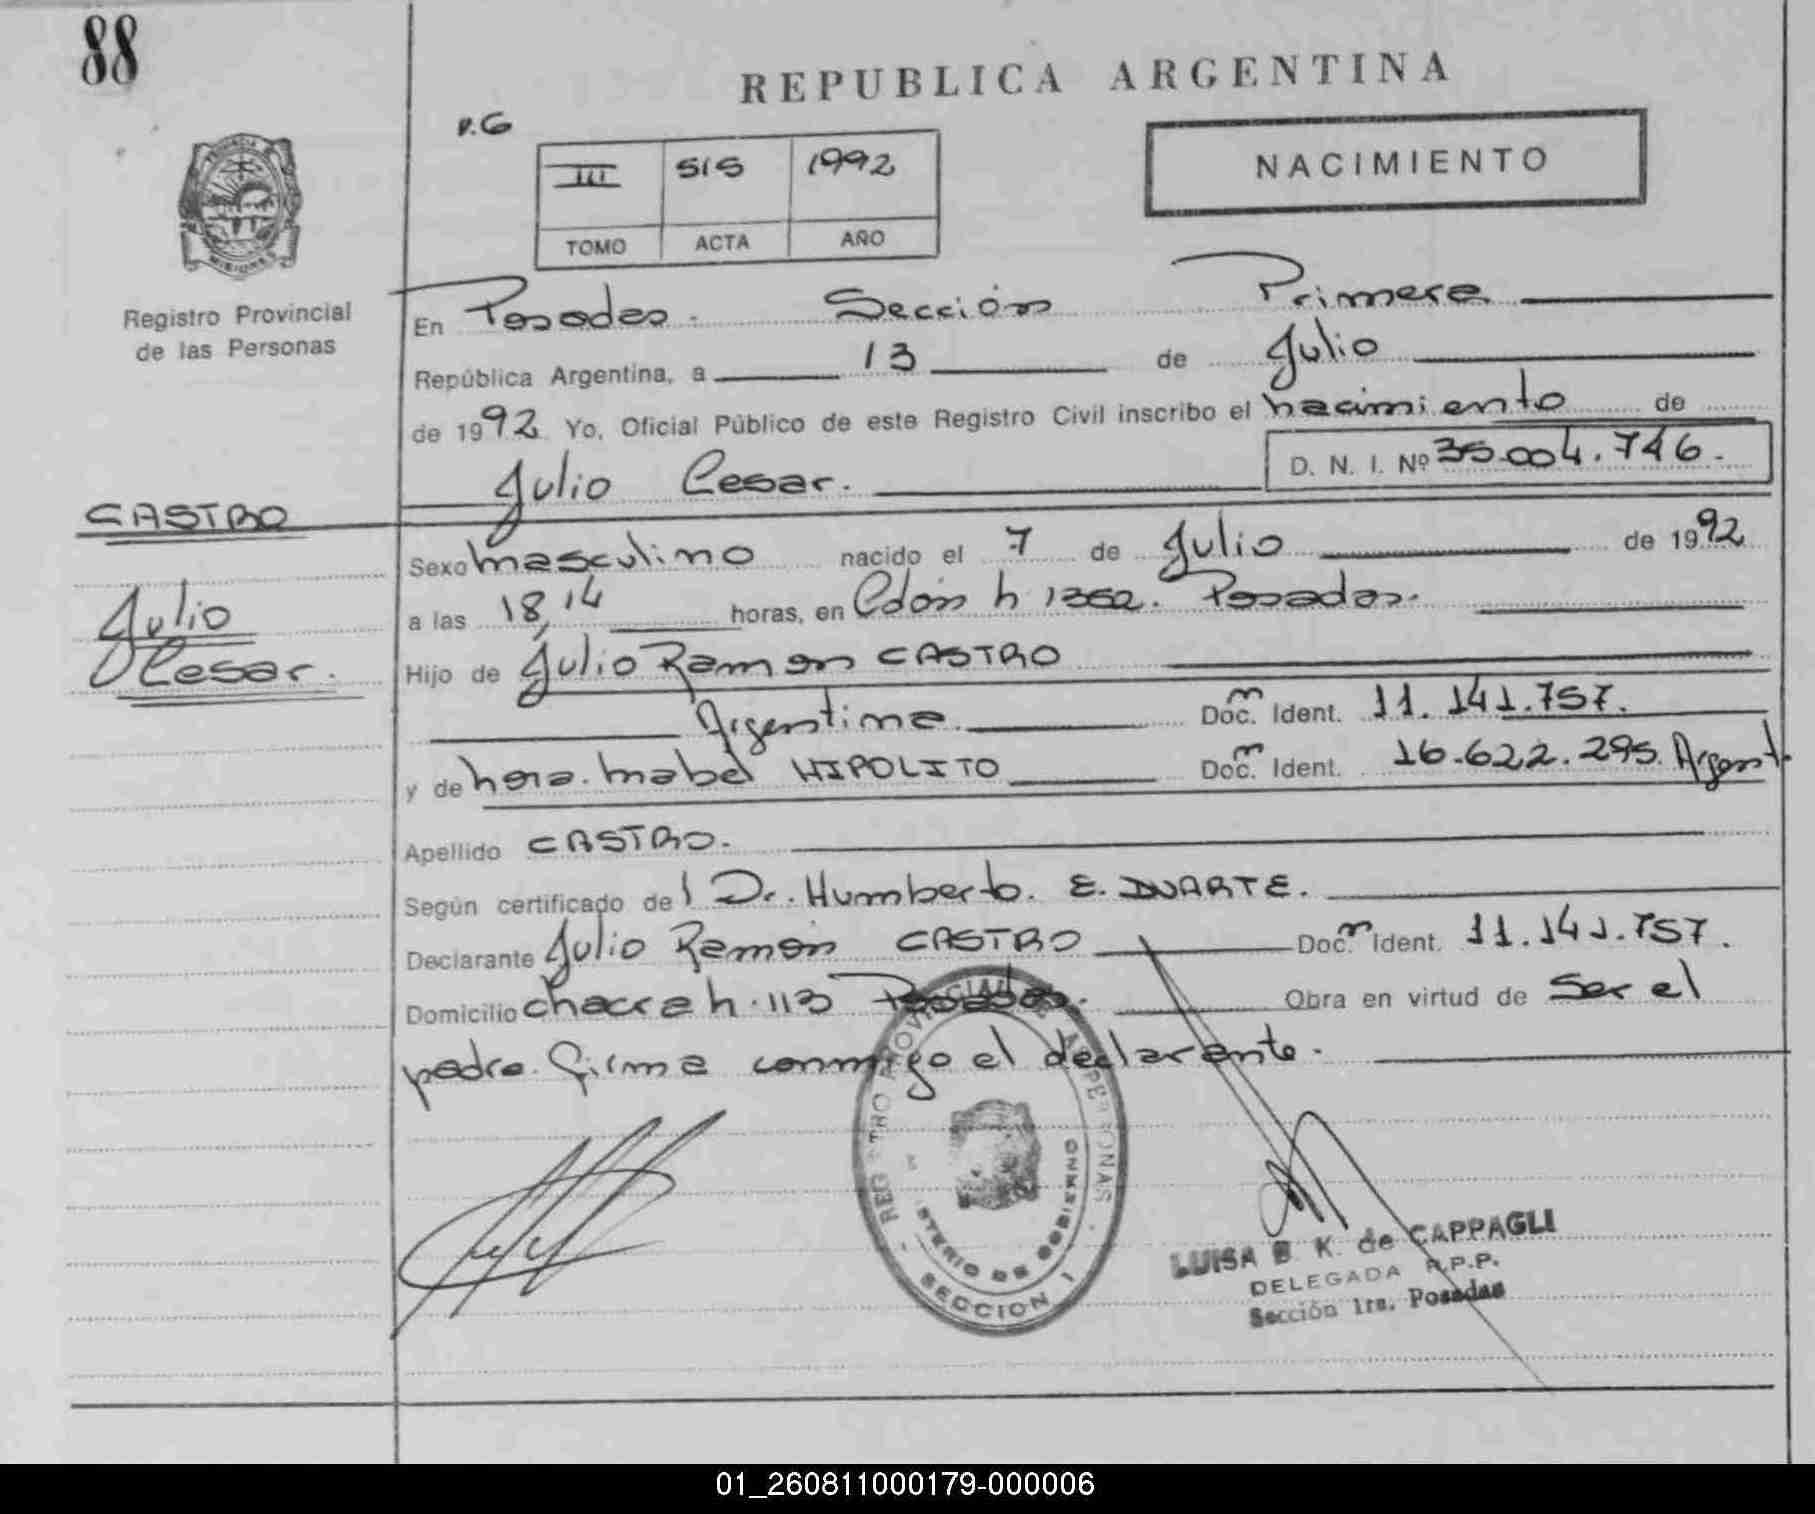 88
REPUBLICA ARGENTINA
P.G
III 515 1992
TOMO ACTA AÑO
NACIMIENTO
PROVINCIA DE
MISIONES
Registro Provincial
de las Personas
En Posadas. Sección Primera
República Argentina, a 13 de Julio
de 1992 Yo, Oficial Público de este Registro Civil inscribo el nacimiento de
Julio Cesar. D. N. I. Nº 35.004.746.
CASTRO
Julio
Cesar.
Sexo masculino nacido el 7 de Julio de 1992
a las 18,14 horas, en Colón n 1362. Posadas.
Hijo de Julio Ramon CASTRO
Argentina Doc. m Ident. 11.141.757.
y de Nora Mabel HIPOLITO Doc. m Ident. 16.622.295. Argent.
Apellido CASTRO.
Según certificado del Dr. Humberto. E. DUARTE.
Declarante Julio Ramón CASTRO Doc. m Ident. 11.141.757.
Domicilio chacra n. 113 Posadas. Obra en virtud de Ser el
padre. Firma conmigo el declarante.
REGISTRO PROVINCIAL DE LAS PERSONAS
MINISTERIO DE GOBIERNO
SECCION I
LUISA B K. de CAPPAGLI
DELEGADA R.P.P.
Sección 1ra. Posadas
01_260811000179-000006